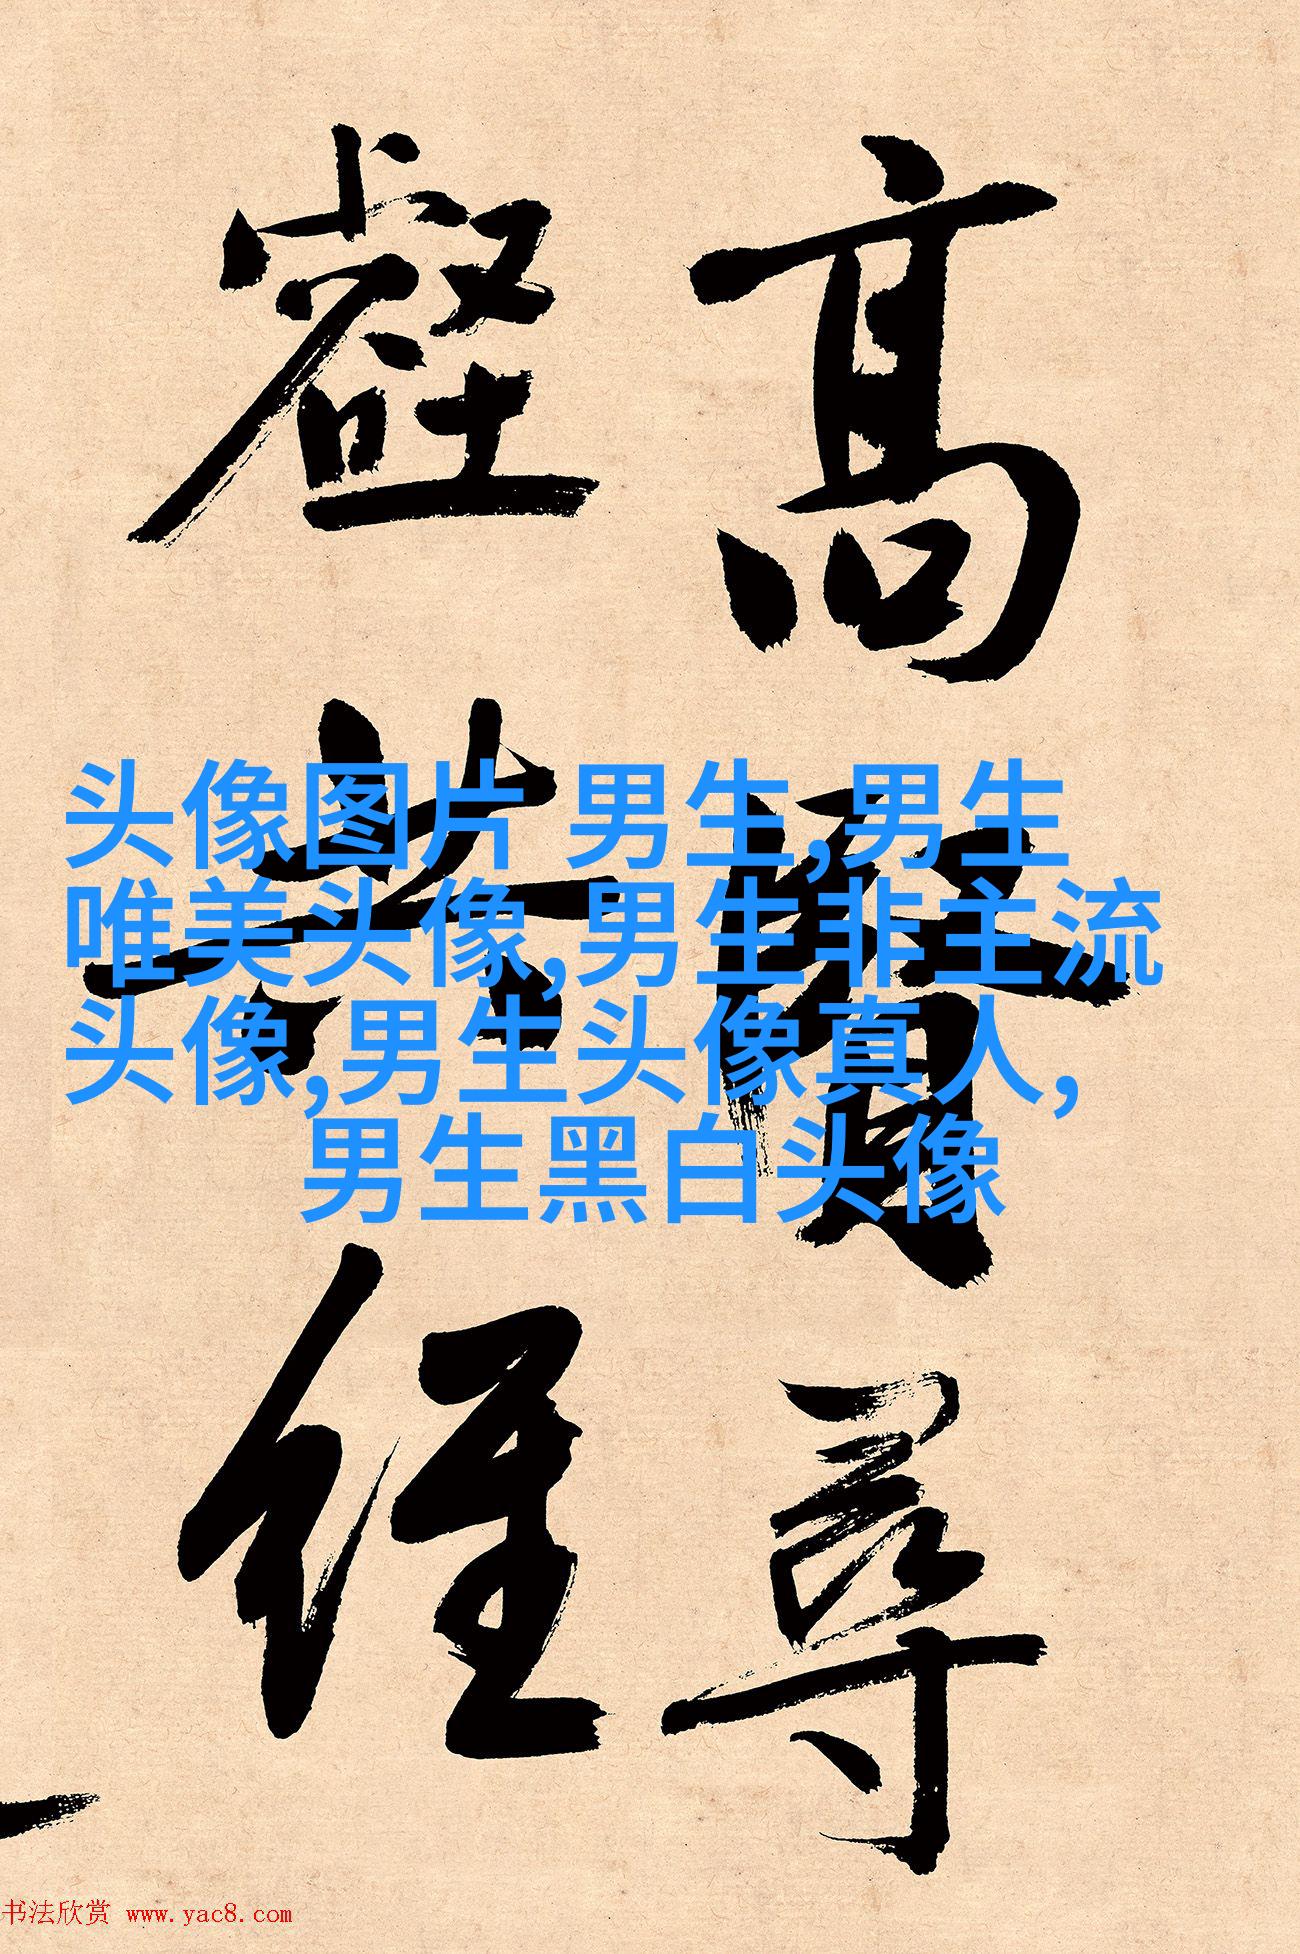 高賢尋
壑共經
头像图片 男生,男生
唯美头像,男生非主流
头像,男生头像真人,
男生黑白头像
书法欣赏 www.yac8.com